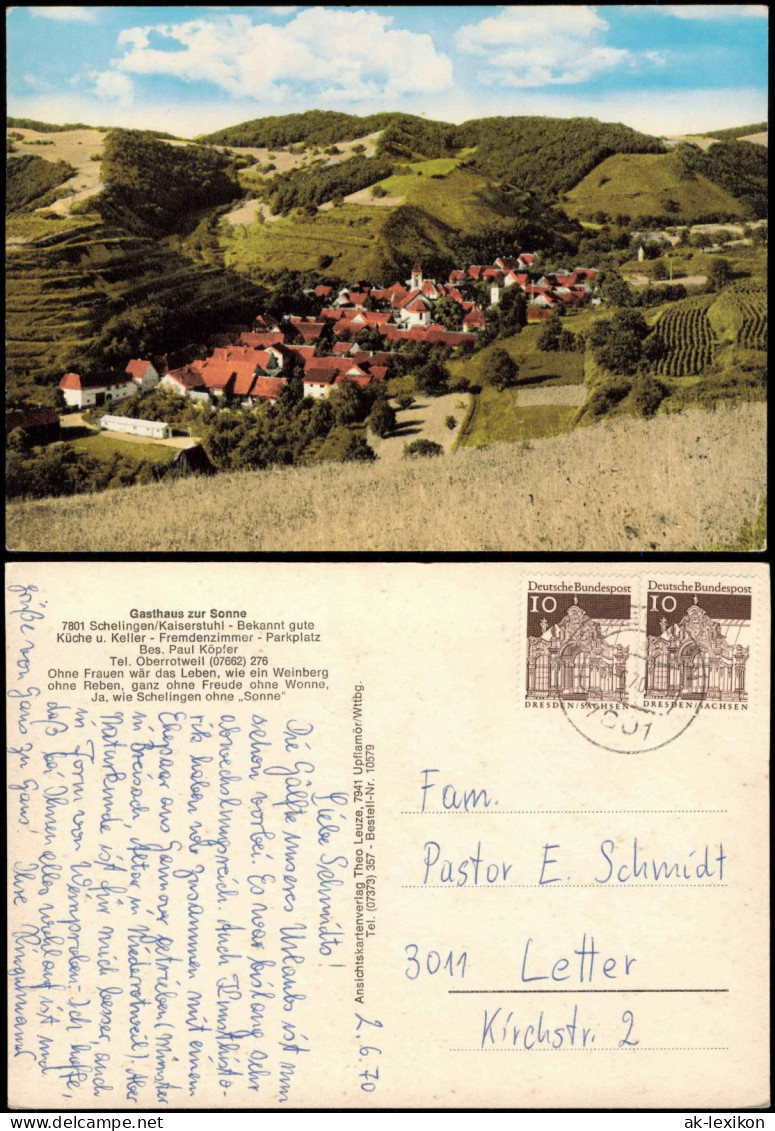 Gasthaus zur Sonne
7801 Schelingen/Kaiserstuhl - Bekannt gute
Küche u. Keller - Fremdenzimmer - Parkplatz
Bes. Paul Köpfer
Tel. Oberrotweil (07662) 276
Ohne Frauen wär das Leben, wie ein Weinberg
ohne Reben, ganz ohne Freude ohne Wonne,
Ja, wie Schelingen ohne „Sonne"
Deutsche Bundespost
10
DRESDEN/SACHSEN
Deutsche Bundespost
10
DRESDEN/SACHSEN
7801
2.6.70
Liebe Schmidts!
Die Hälfte unseres Urlaubs ist nun
schon vorbei. Es war bislang sehr
abwechslungsreich. Auch Kunsthisto-
rik haben wir zusammen mit einem
Ehepaar aus Hannover getrieben (Münster
in Breisach, Altar in Niederrotweil). Aber
Naturkunde ist für mich besser, auch
in Form von Weinproben. Ich hoffe,
daß bei Ihnen alles wohlauf ist und
grüße von Haus zu Haus! Ihre
Ansichtskartenverlag Theo Leuze, 7941 Upflamör/Wttbg.
Tel. (07373) 357 - Bestell-Nr. 10579
Fam.
Pastor E. Schmidt
3011 Letter
Kirchstr. 2
delcampe.net
ak-lexikon